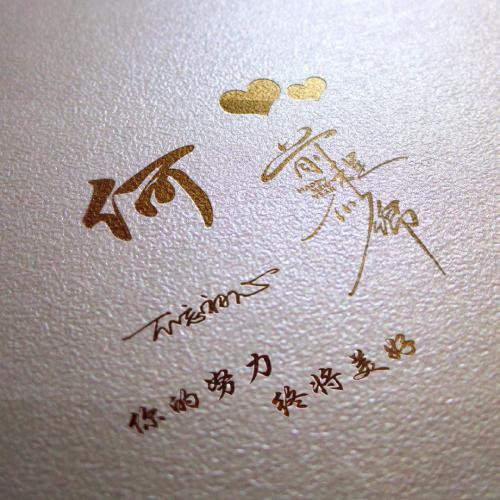 何
前程似锦
不忘初心
你的努力
终将美好